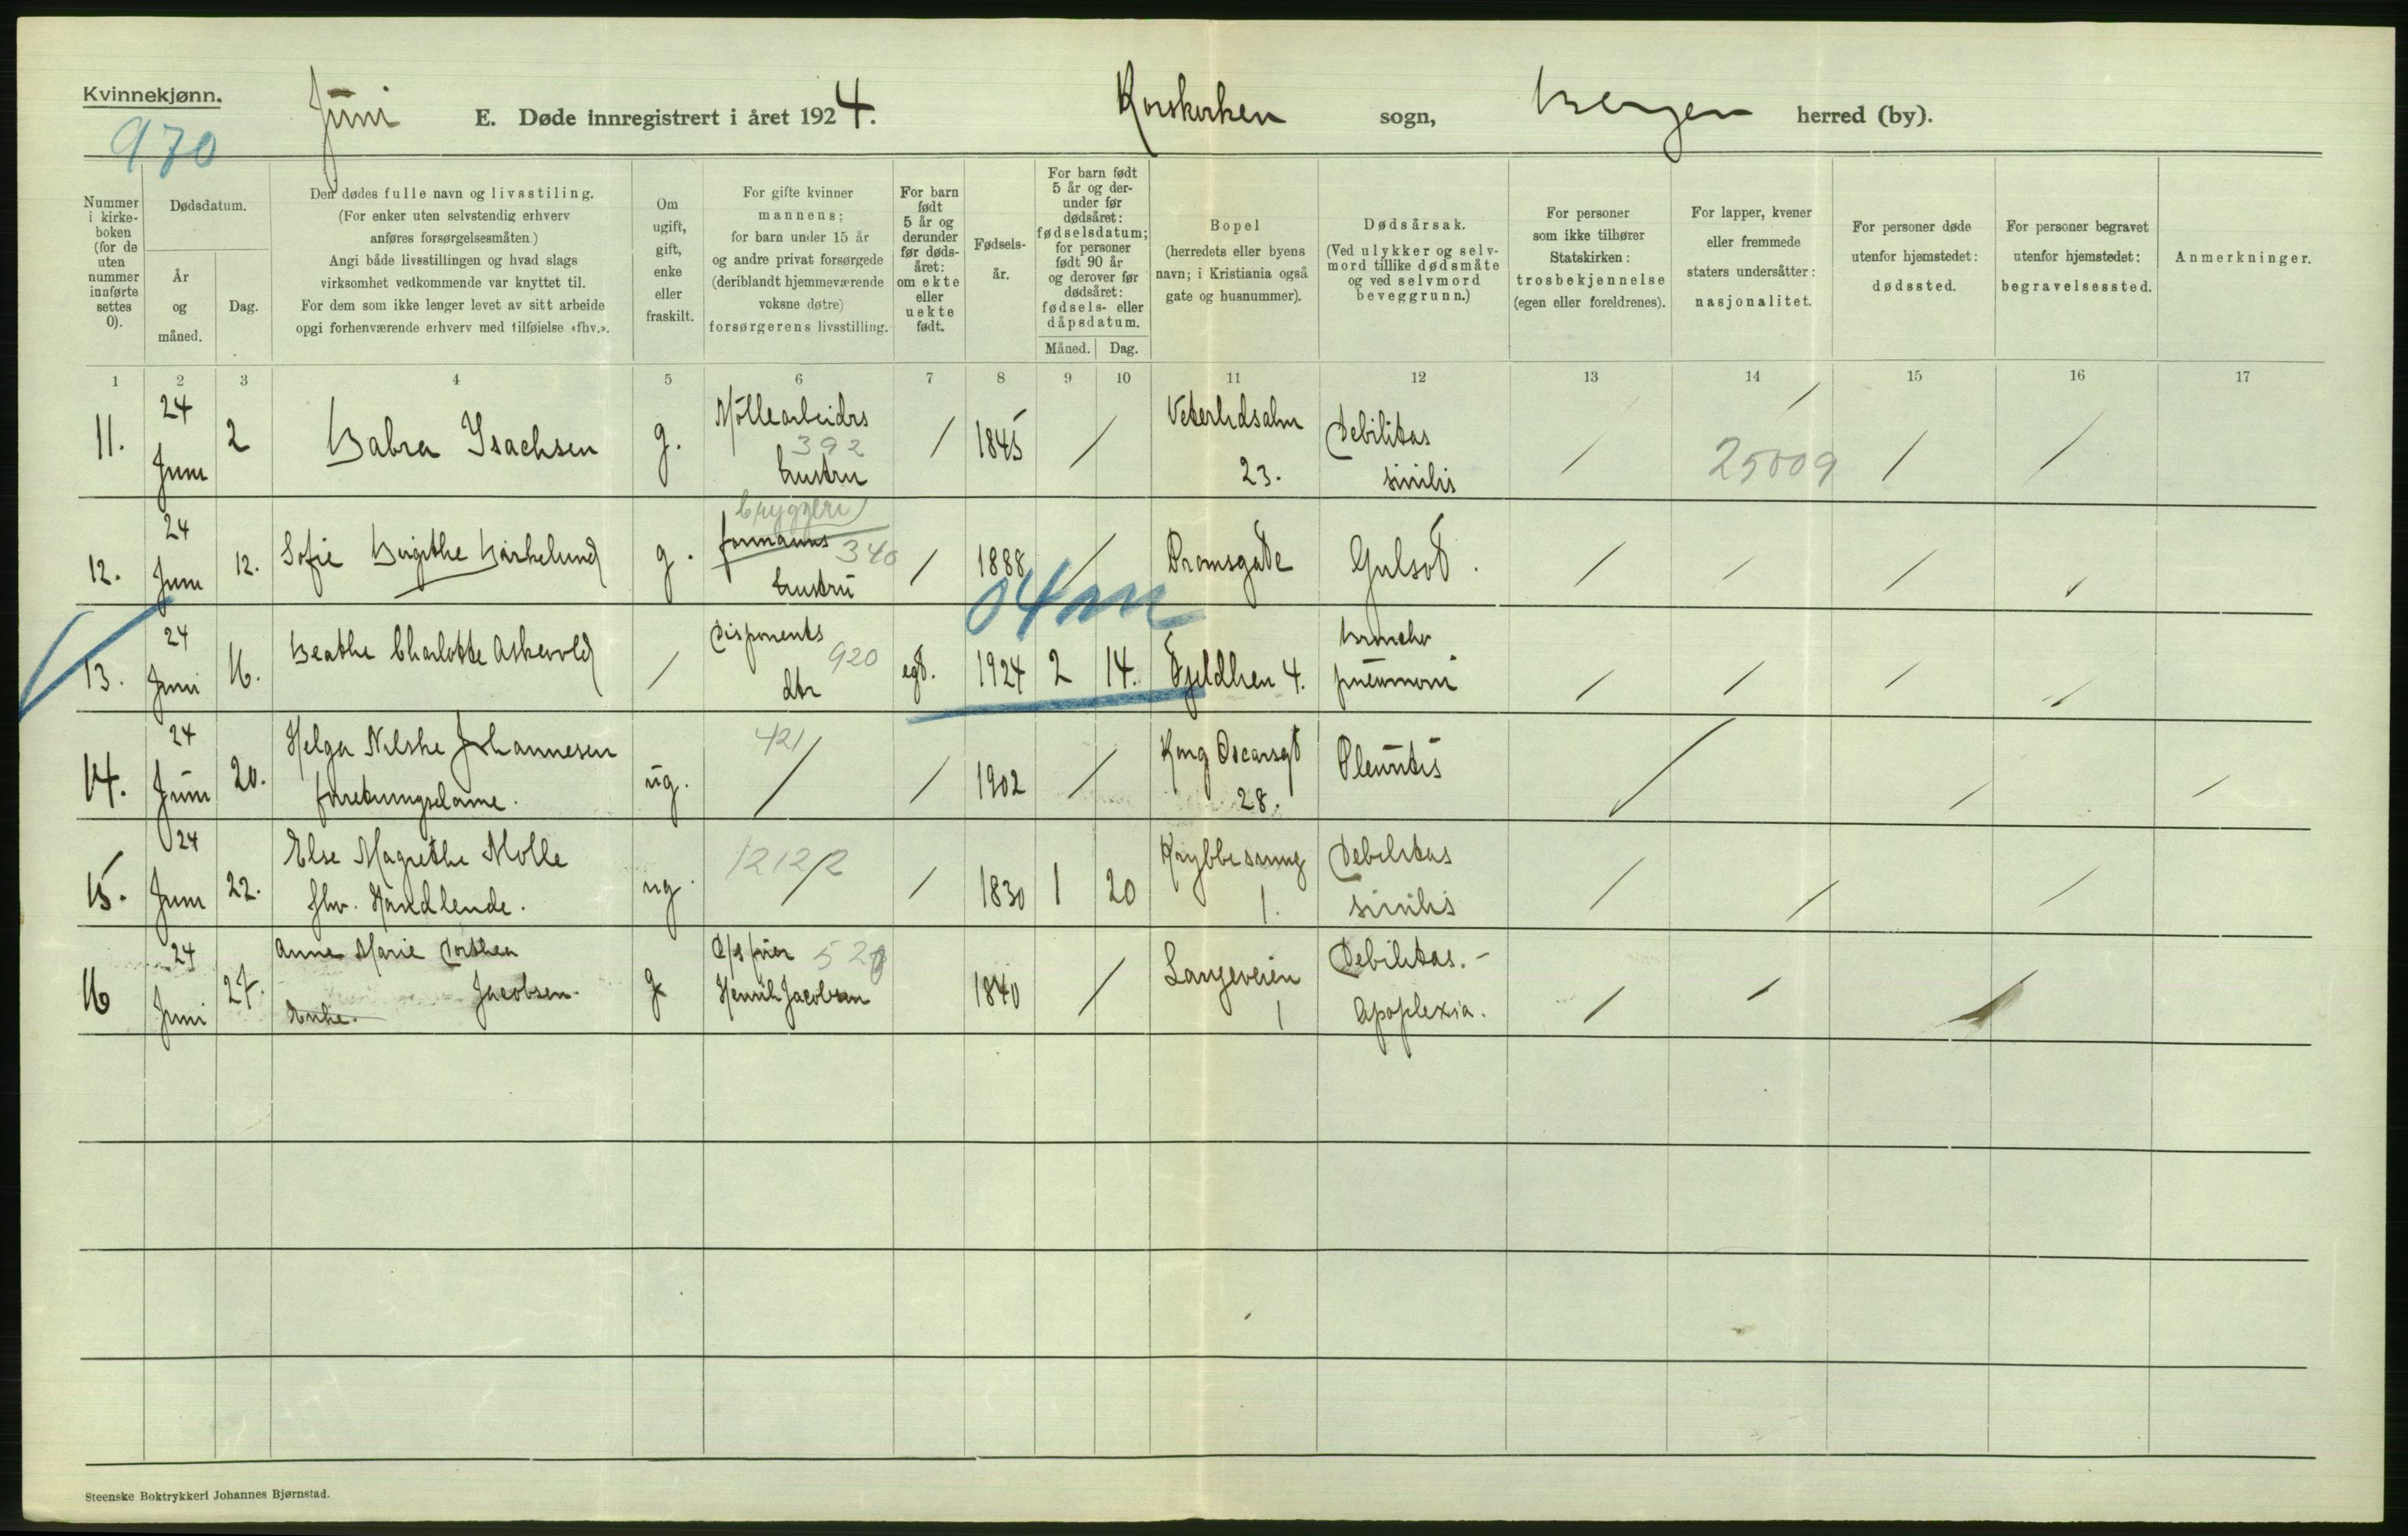 Kvinnekjønn.
970
Juni
E. Døde innregistrert i året 1924.
Korskirken sogn, Bergen herred (by).
Nummer i kirke-boken (for de uten nummer innførte settes 0).
Dødsdatum.
År og måned.
Dag.
Den dødes fulle navn og livsstiling.
(For enker uten selvstendig erhverv
anføres forsørgelsesmåten.)
Angi både livsstillingen og hvad slags
virksomhet vedkommende var knyttet til.
For dem som ikke lenger levet av sitt arbeide
opgi forhenværende erhverv med tilføielse «fhv.».
Om ugift, gift, enke eller fraskilt.
For gifte kvinner
mannens;
for barn under 15 år
og andre privat forsørgede
(deriblandt hjemmeværende
voksne døtre)
forsørgerens livsstilling.
For barn født 5 år og derunder før døds-året: om ekte eller uekte født.
Fødsels-år.
For barn født 5 år og der-under før dødsåret: fødselsdatum; for personer født 90 år og derover før dødsåret: fødsels- eller dåpsdatum.
Måned. Dag.
Bopel
(herredets eller byens
navn; i Kristiania også
gate og husnummer).
Dødsårsak.
(Ved ulykker og selv-
mord tillike dødsmåte
og ved selvmord
beveggrunn.)
For personer
som ikke tilhører
Statskirken:
trosbekjennelse
(egen eller foreldrenes).
For lapper, kvener
eller fremmede
staters undersåtter:
nasjonalitet.
For personer døde
utenfor hjemstedet:
dødssted.
For personer begravet
utenfor hjemstedet:
begravelsessted.
Anmerkninger.
1 2 3 4 5 6 7 8 9 10 11 12 13 14 15 16 17
11. 24 Juni 2 Babra Isachsen g. Møllearbeidrs 392 hustru / 1845 / Veterlidsalm 23. Debilitas sinilis / / 25009 / /
12. 24 Juni 12. Sofie Birgithe Birkelund g. bryggeri formanns 340 hustru / 1888 / Dramsgate Gulsot. / / / /
04m
13. 24 Juni 16. Beathe Charlotte Askevold / Disponents 920 dtr egt. 1924 2 14. Fjeldlien 4. Broncho pneumoni / / / /
14. 24 Juni 20. Helga Nilske Johannesen forretningsdame. ug. 421 / / 1902 / Kong Oscarsgt 28. Pleuritis / / /
15. 24 Juni 22. Else Magrethe Molle fhv. Handlende. ug. 1212/2 / 1830 1 20 Krybbesmug 1. Debilitas sinilis / / /
16 24 Juni 27. Anne Marie Dorthea Jacobsen. Enke. g 520 Henrik Jacobsen 1840 / Langeveien 1 Debilitas.- Apoplexia. / /
Steenske Boktrykkeri Johannes Bjørnstad.